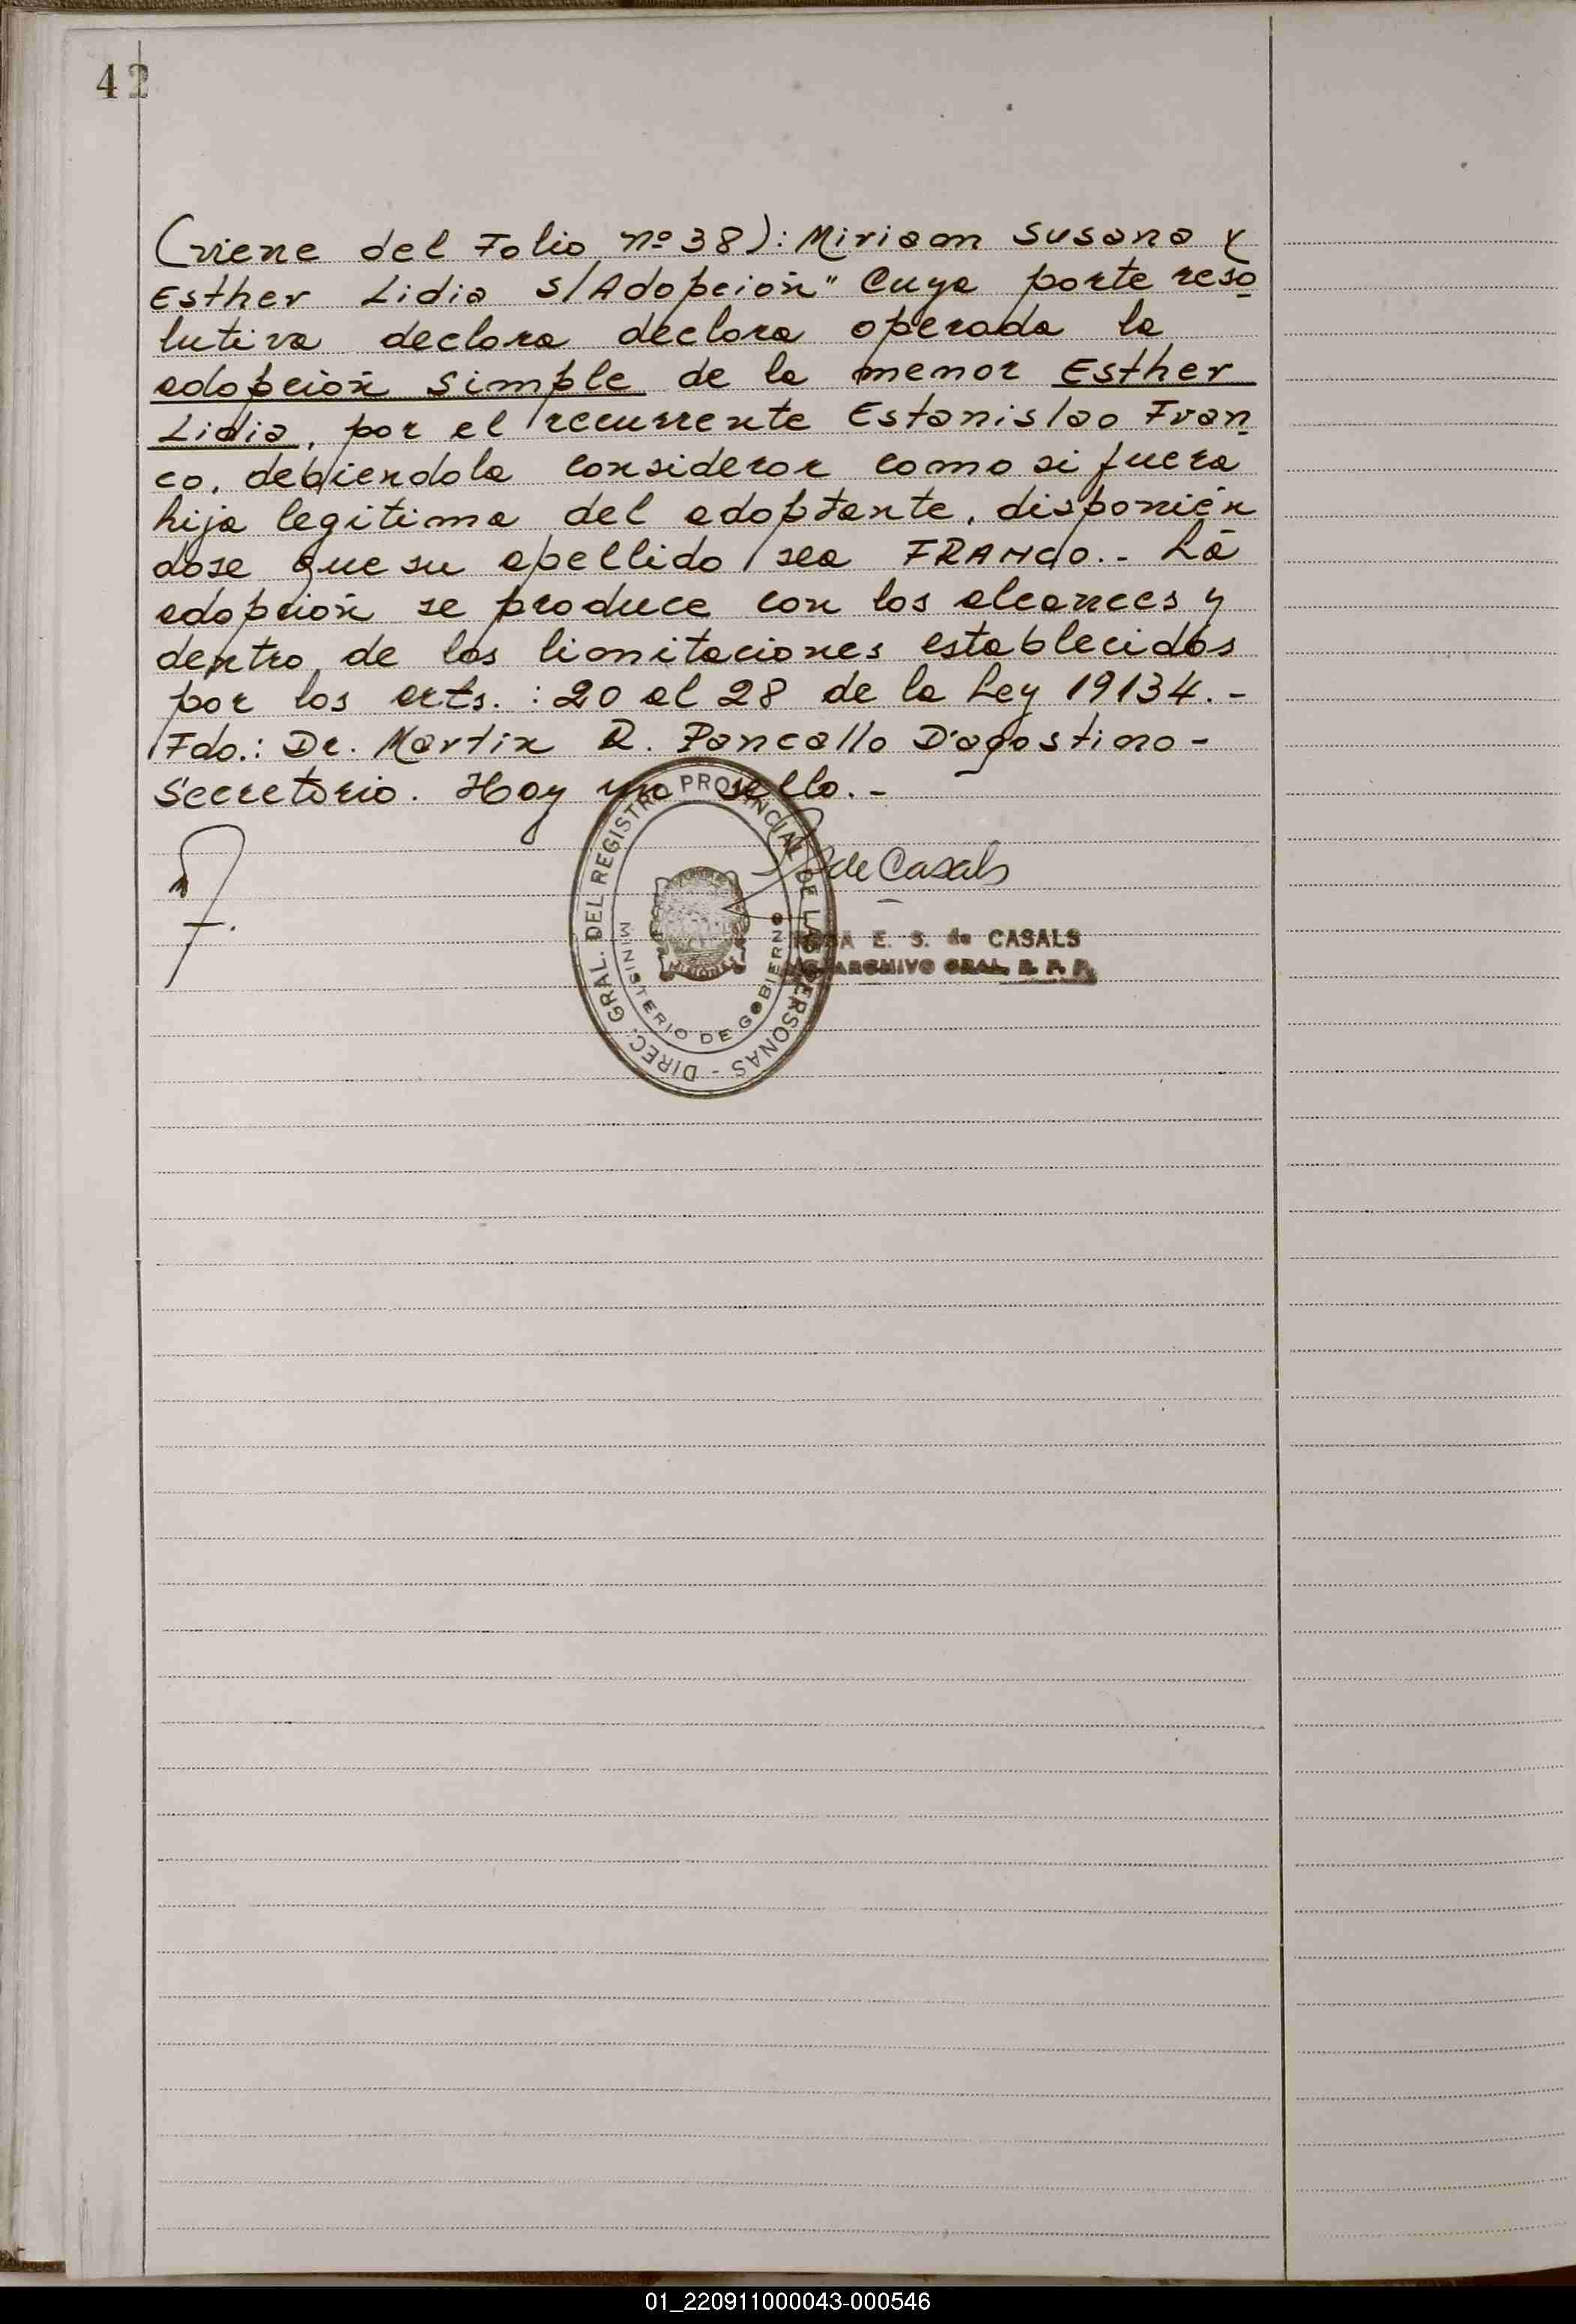 42
(viene del Folio nº 38): Miriam Susana y
Esther Lidia s/Adopción" Cuya parte reso
lutiva declara declara operada la
adopción simple de la menor Esther
Lidia, por el recurrente Estanislao Fran
co, debiendola considerar como si fuera
hija legitima del adoptante, disponién
dose que su apellido sea FRANCO.- La
adopción se produce con los alcances y
dentro de las limitaciones establecidas
por los arts.: 20 al 28 de la Ley 19134.-
Fdo.: Dr. Martin R. Pancallo D'agostino-
Secretario. Hay un sello.-
DIREC. GRAL. DEL REGISTRO PROVINCIAL DE LAS PERSONAS -
MINISTERIO DE GOBIERNO
MISIONES
de Casals
E. S. de CASALS
ARCHIVO GRAL. R. P. P.
01_220911000043-000546